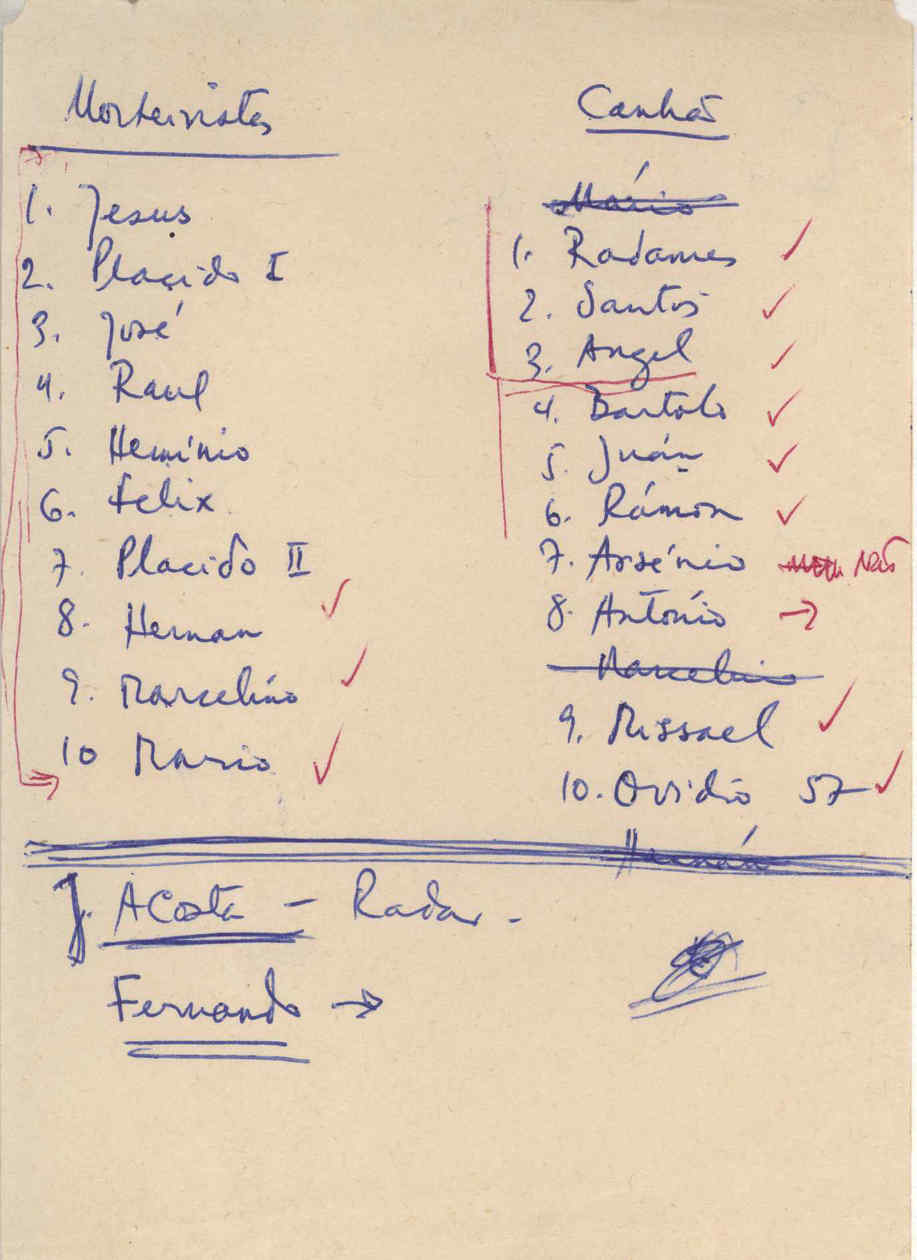 Morteiristas
1. Jesus
2. Placido I
3. José
4. Raul
5. Hemínio
6. Felix
7. Placido II
8. Hernan ✓
9. Marcelino ✓
10 Mario ✓
Canhão
Mário
1. Radames ✓
2. Santos ✓
3. Angel ✓
4. Bartolo ✓
5. Juán ✓
6. Rámon ✓
7. Arsénio Não
8. António →
Marcelino
9. Missael ✓
10. Ovidio 57 ✓
Hernán
J. Acosta – Radar -
Fernando →